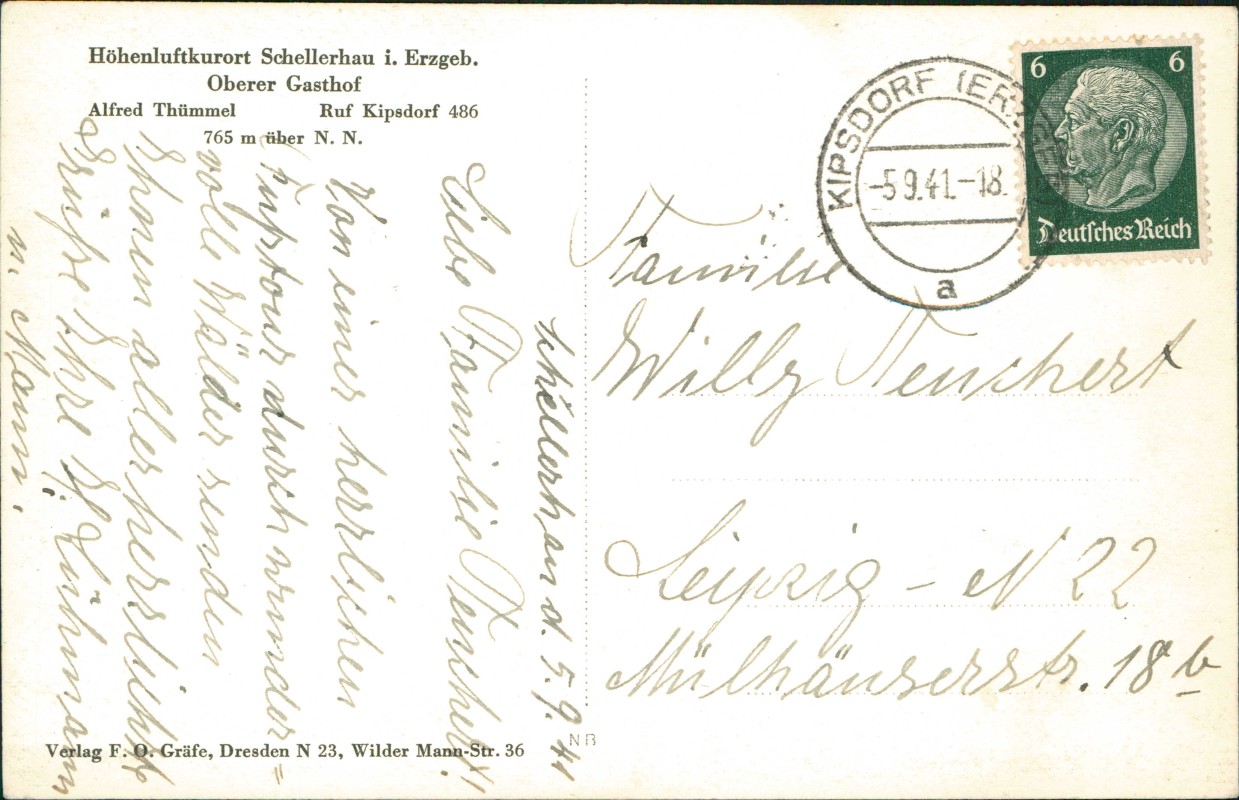 Höhenluftkurort Schellerhau i. Erzgeb.
Oberer Gasthof
Alfred Thümmel Ruf Kipsdorf 486
765 m über N. N.
Schellerhau d. 5.9.41
Liebe Familie Teuchert!
Von einer herrlichen
Fußtour durch wunder=
volle Wälder senden
Ihnen aller herrlichst
Grüße Ihre
u. Mann.
Verlag F. O. Gräfe, Dresden N 23, Wilder Mann-Str. 36
NB
KIPSDORF (ERZGEB)
-5.9.41.-18
a
6 6
Deutsches Reich
Familie
Willy Teuchert
Leipzig - N 22
Mülhäuserstr. 18 b